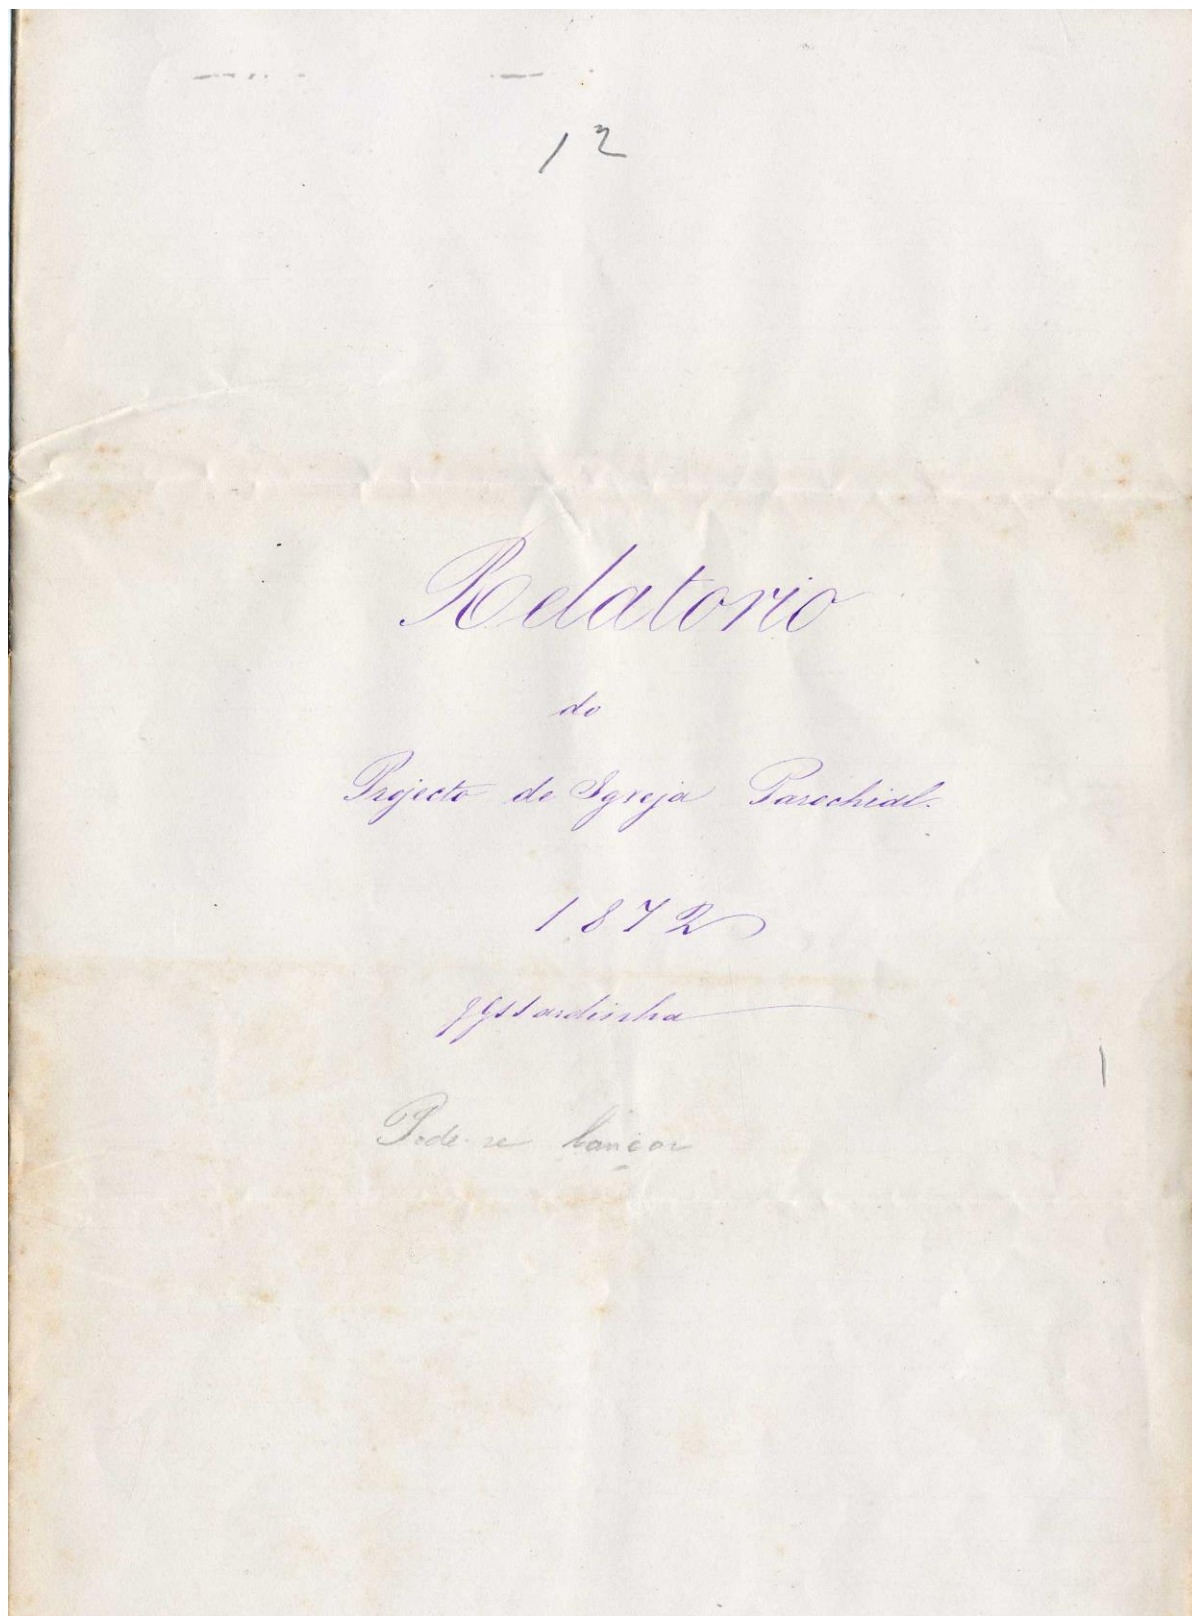 12
Relatorio
do
Projecto de Igreja Parochial.
1872
JGSSardinha
Pode-se lançar